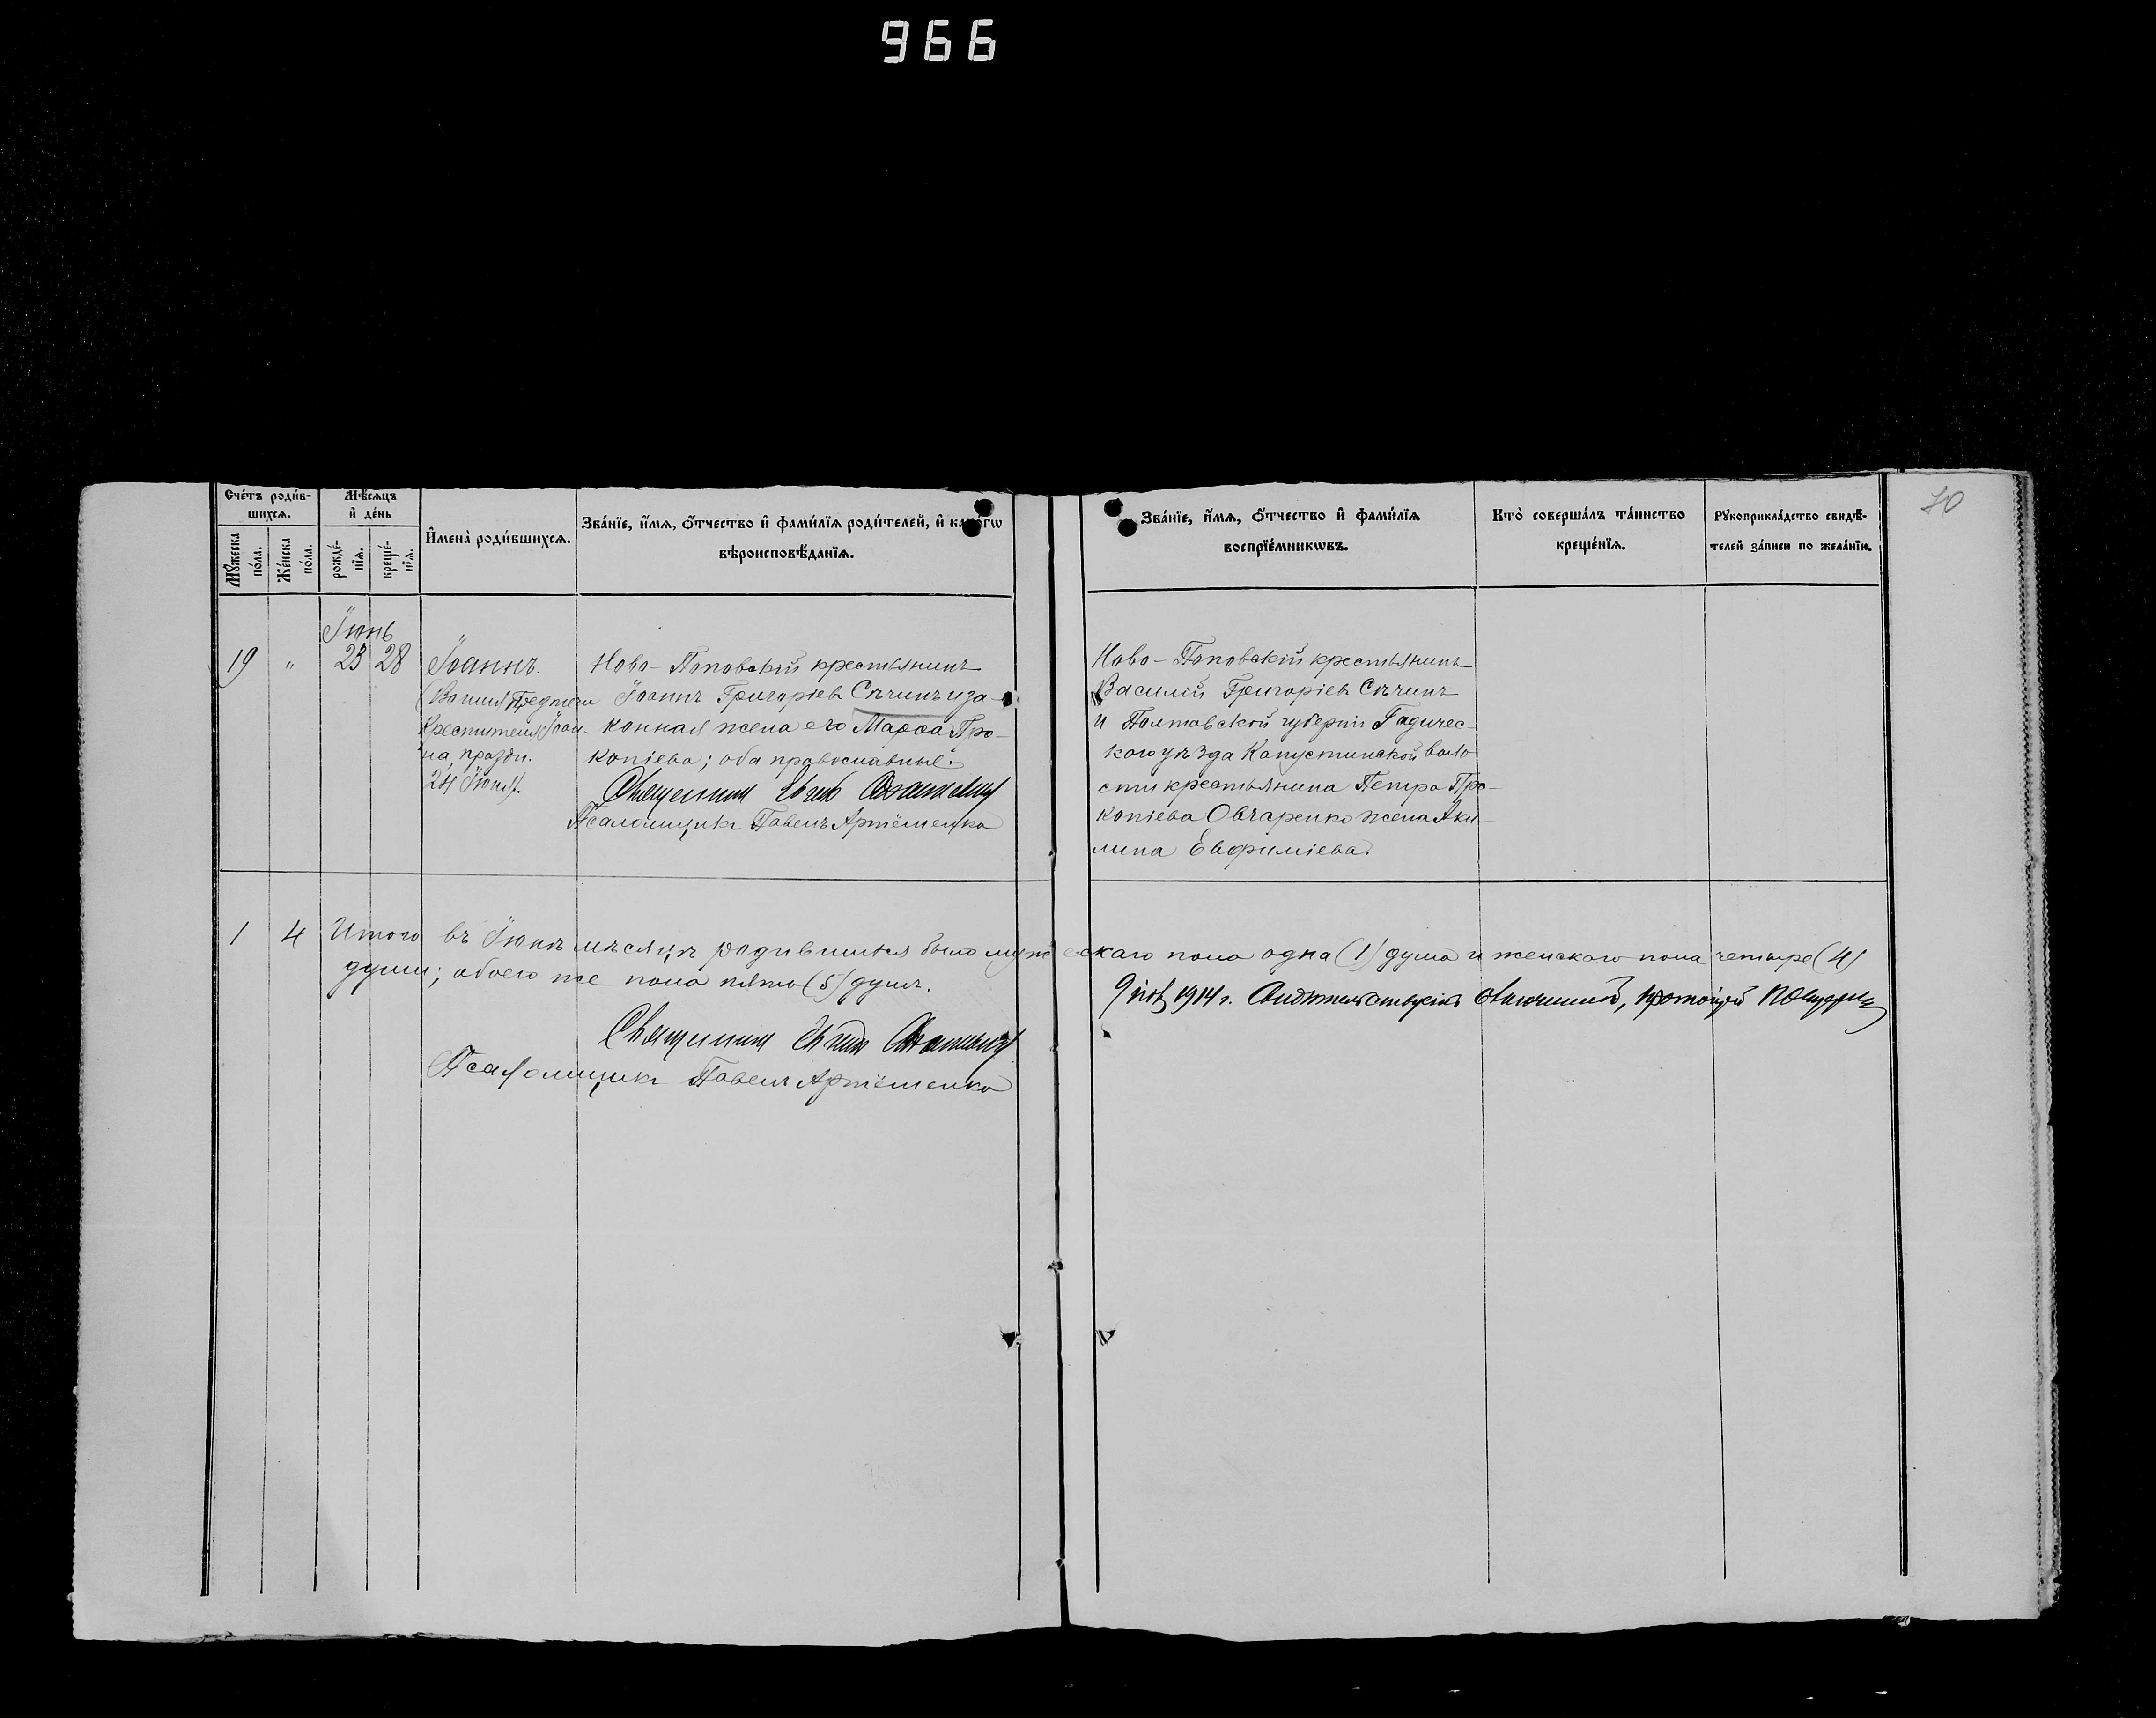 966
70
Сче́тъ роди́в-
шихсѧ.
Мѣ́сѧцъ
и҆ де́нь
Мꙋ́жеска
по́ла.
Же́нска
по́ла.
рожде́-
нїѧ.
креще́-
нїѧ.
И҆мена̀ роди́вшихсѧ.
Зва́нїе, и҆́мѧ, ѻ҆́тчество и҆ фами́лїѧ роди́телей, и҆ како́гѡ
вѣроисповѣ́данїѧ.
Зва́нїе, и҆́мѧ, ѻ҆́тчество и҆ фами́лїѧ
воспрїе́мникѡвъ.
Кто̀ соверша́лъ та́инство
креще́нїѧ.
Рꙋкоприкла́дство свидѣ́-
телей за́писи по жела́нїю.
Іюнь
19 " 23 28
Іоаннъ.
Предтечи
Крестителя Іоан-
на, праздн.
24 Іюня).
Ново-Поповскій крестьянинъ
Іоаннъ Григоріевъ Сѣчинъ и за-
конная жена его Марѳа Про-
копіева; оба православные.
Священникъ
Псаломщикъ Павелъ Артёменко
Ново-Поповскій крестьянинъ
Василій Григоріевъ Сѣчинъ
и Полтавской губерніи Гадичес-
каго уѣзда Капустинской воло-
сти крестьянина Петра Про-
копіева Овчаренко жена Аки-
лина Евфиміева.
1 4 Итого въ Іюнѣ мѣсяцѣ родившихся было мужескаго пола одна (1) душа и женскаго пола четыре (4)
души; обоего же пола пять (5) душъ.
1914 г.
Священникъ
Псаломщикъ Павелъ Артёменко